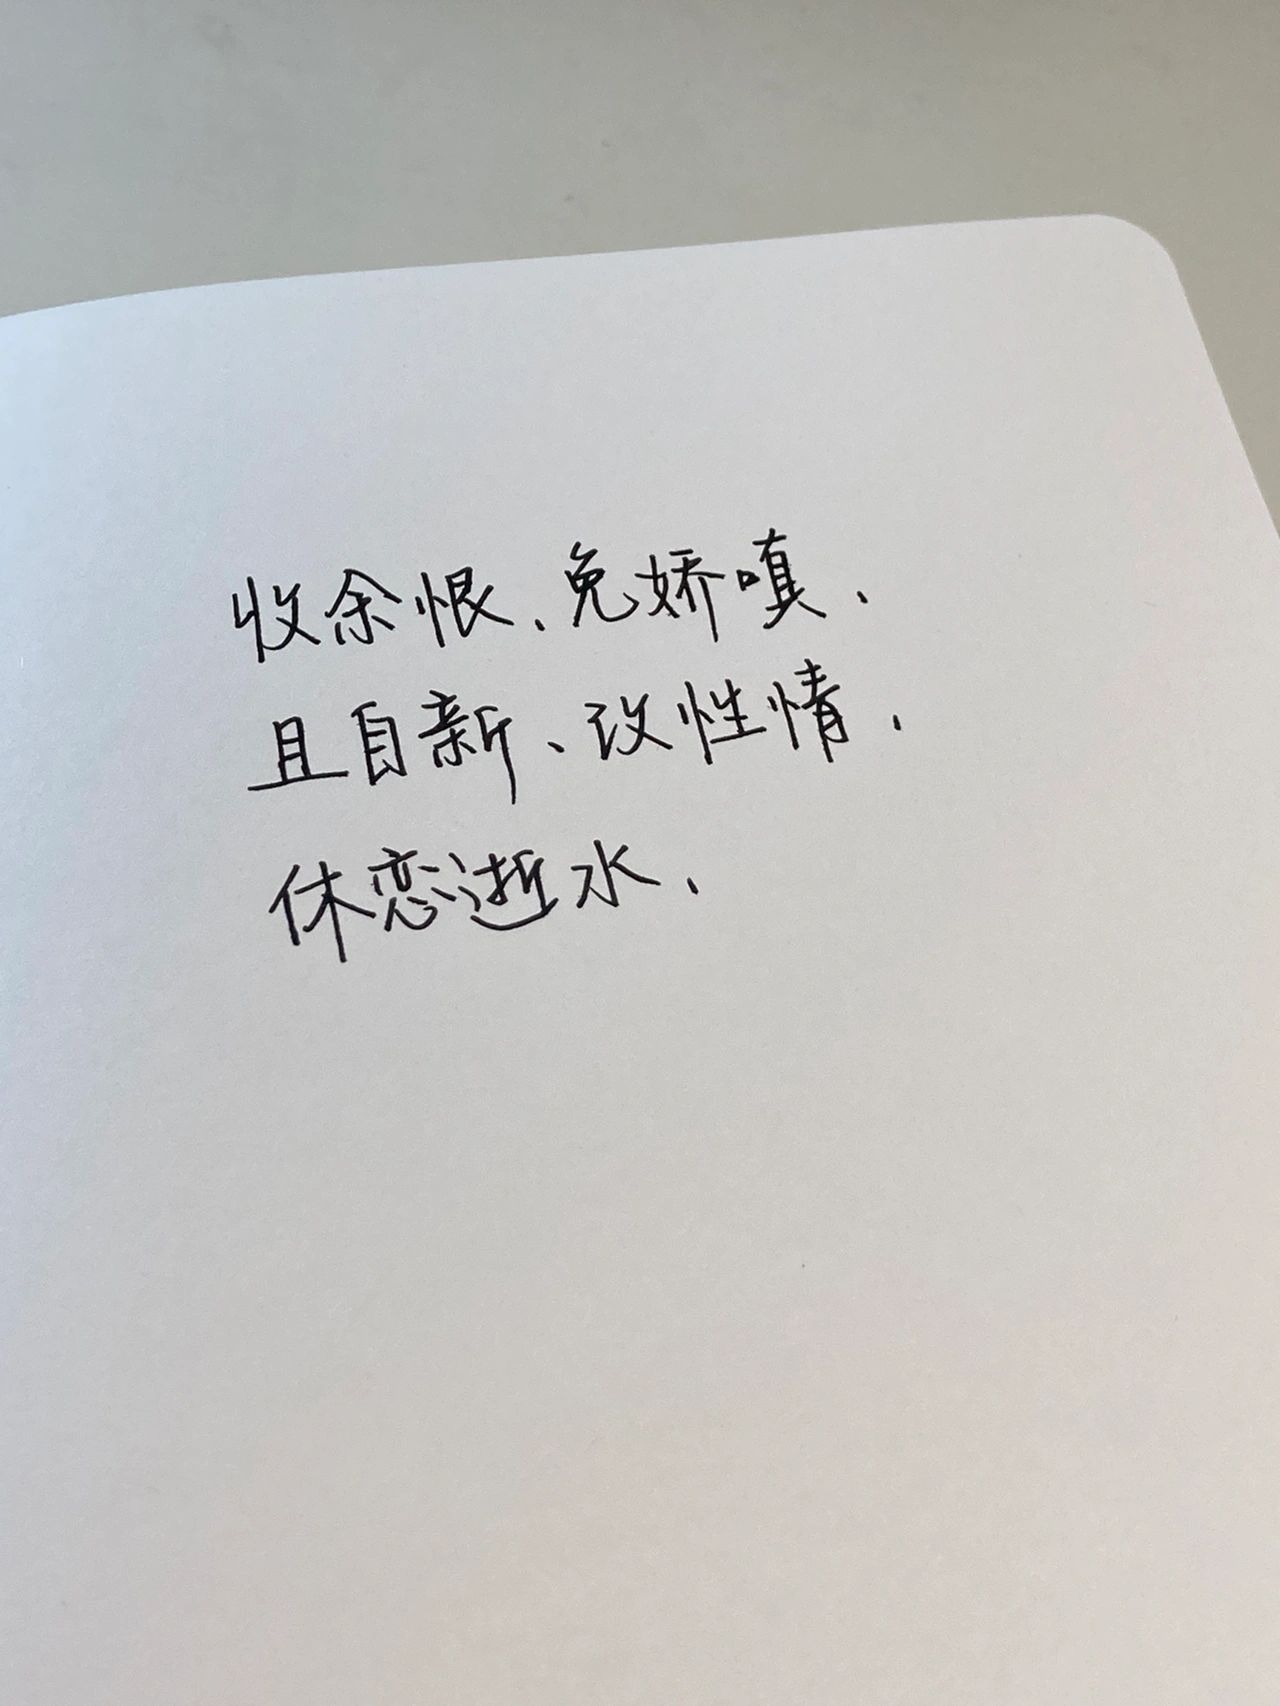 收余恨、免娇嗔、
且自新、改性情、
休恋逝水、